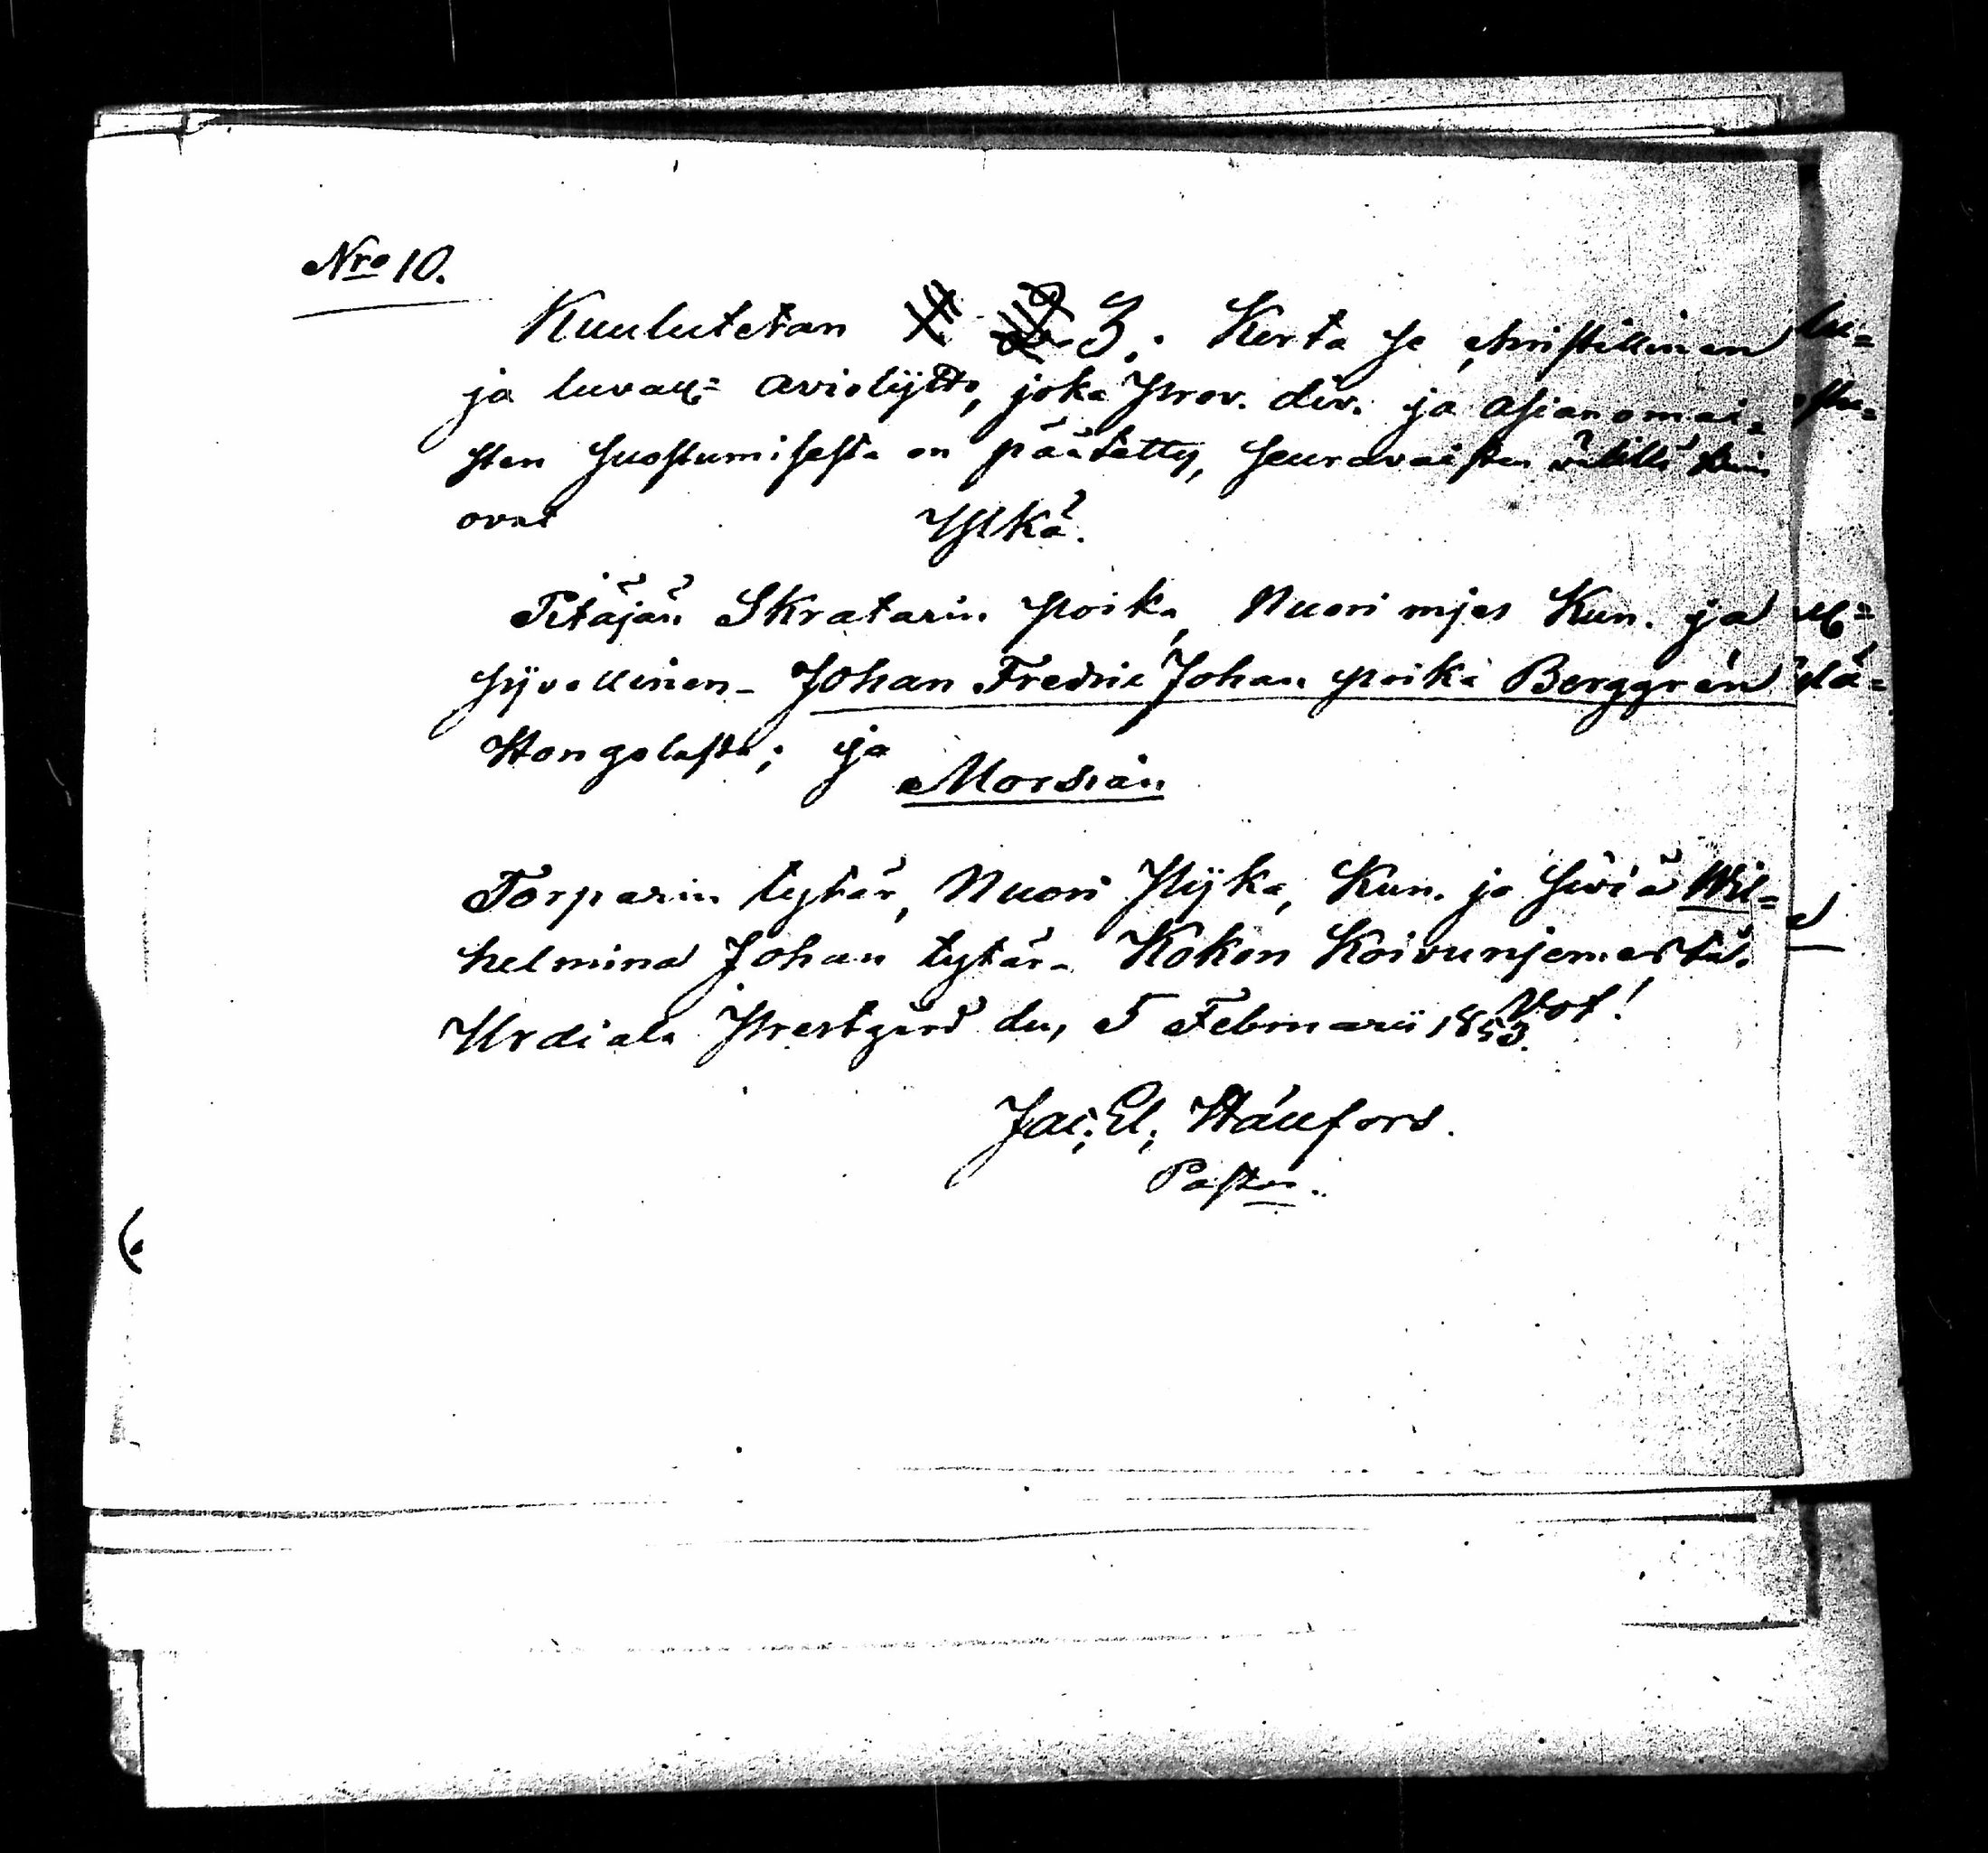 Nro 10.
Kuulutetan 3. Kerta se christillinen
ja luvall= aviolijtto, joka Prov. div. ja asianomai=
sten suostumisesta on päätetty, seuravaisten välillä kuin
ovat
Ylkä.
Pitäjän Skratarin Poika, Nuori mjes Kun. ja
syvellinen - Johan Fredric Johan poika Berggrén
Hongolasta; ja
Morsian
Torparin tytär, Nuori Pijka, Kun. ja siviä Wil=
helmina Johan tytär - Kokon Koivunjemestä.
Vot!
Urdiala Prestgård den, 5 Februarii 1853.
Jac; El; Hällfors.
Pastor.